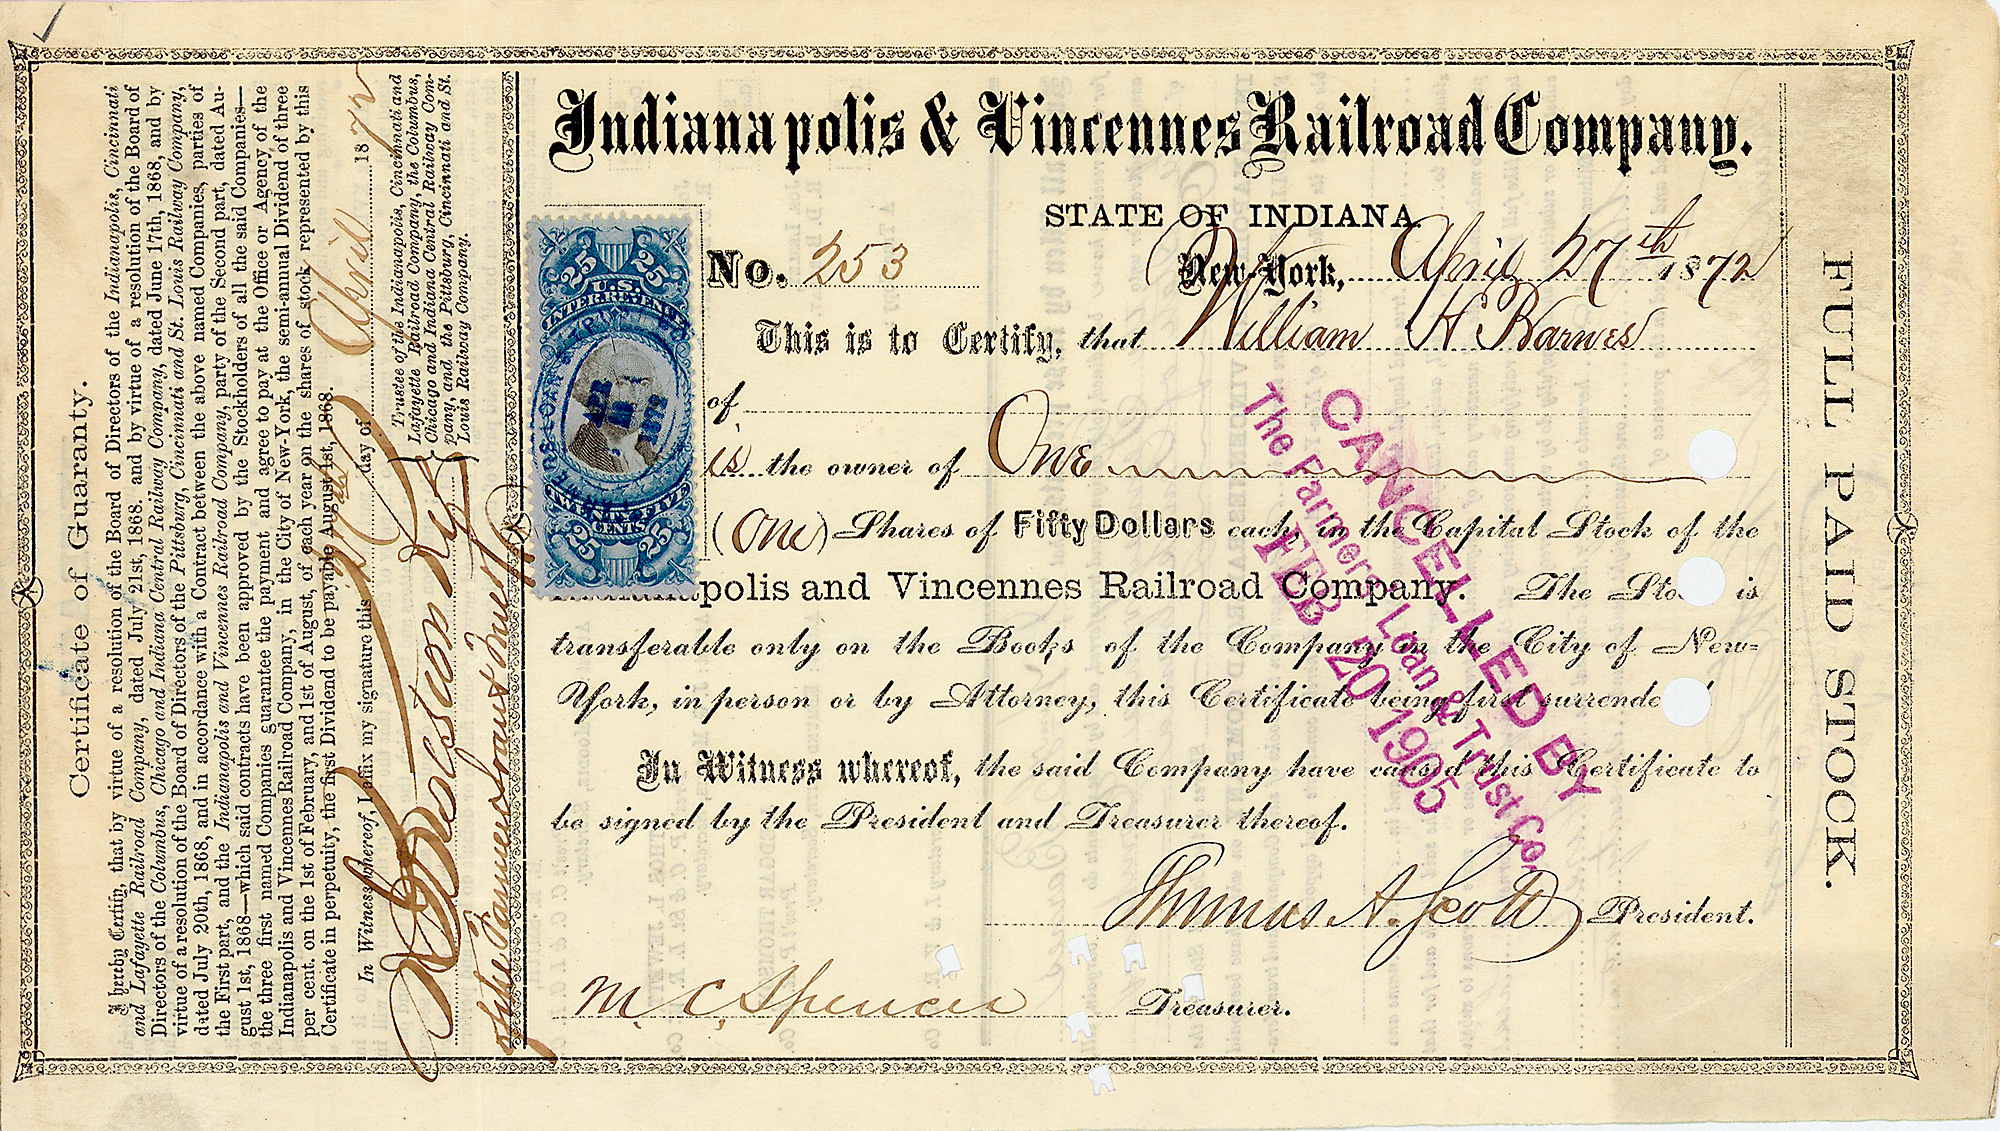 Certificate of Guaranty.
I hereby Certify, that by virtue of a resolution of the Board of Directors of the Indianapolis, Cincinnati
and Lafayette Railroad Company, dated July 21st, 1868. and by virtue of a resolution of the Board of
Directors of the Columbus, Chicago and Indiana Central Railway Company, dated June 17th, 1868, and by
virtue of a resolution of the Board of Directors of the Pittsburg, Cincinnati and St. Louis Railway Company,
dated July 20th, 1868, and in accordance with a Contract between the above named Companies, parties of
the First part, and the Indianapolis and Vincennes Railroad Company, party of the Second part, dated Au-
gust 1st, 1868—which said contracts have been approved by the Stockholders of all the said Companies—
the three first named Companies guarantee the payment and agree to pay at the Office or Agency of the
Indianapolis and Vincennes Railroad Company, in the City of New-York, the semi-annual Dividend of three
per cent. on the 1st of February, and 1st of August, of each year on the shares of stock represented by this
Certificate in perpetuity, the first Dividend to be payable August 1st, 1868.
In Witness whereof, I affix my signature this 27th day of April 1872
Trustee of the Indianapolis, Cincinnati and
Lafayette Railroad Company, the Columbus,
Chicago and Indiana Central Railway Com-
pany, and the Pittsburg, Cincinnati and St.
Louis Railway Company.
Indianapolis & Vincennes Railroad Company.
STATE OF INDIANA
No. 253
New-York, April 27th 1872
This is to Certify, that William H Barnes
of
is the owner of One
(One) Shares of Fifty Dollars each, in the Capital Stock of the
polis and Vincennes Railroad Company. The Sto is
transferable only on the Books of the Company in the City of New-
York, in person or by Attorney, this Certificate being first surrende
In Witness whereof, the said Company have caused this Certificate to
be signed by the President and Treasurer thereof.
Thomas A. Scott President.
M. C. Spencer Treasurer.
25 25
U.S.
INTER. REVENUE
TWENTY FIVE
CENTS
25 25
APR
1872
CANCELLED BY
The Farmers Loan & Trust Co.
FEB 20 1905
FULL PAID STOCK.